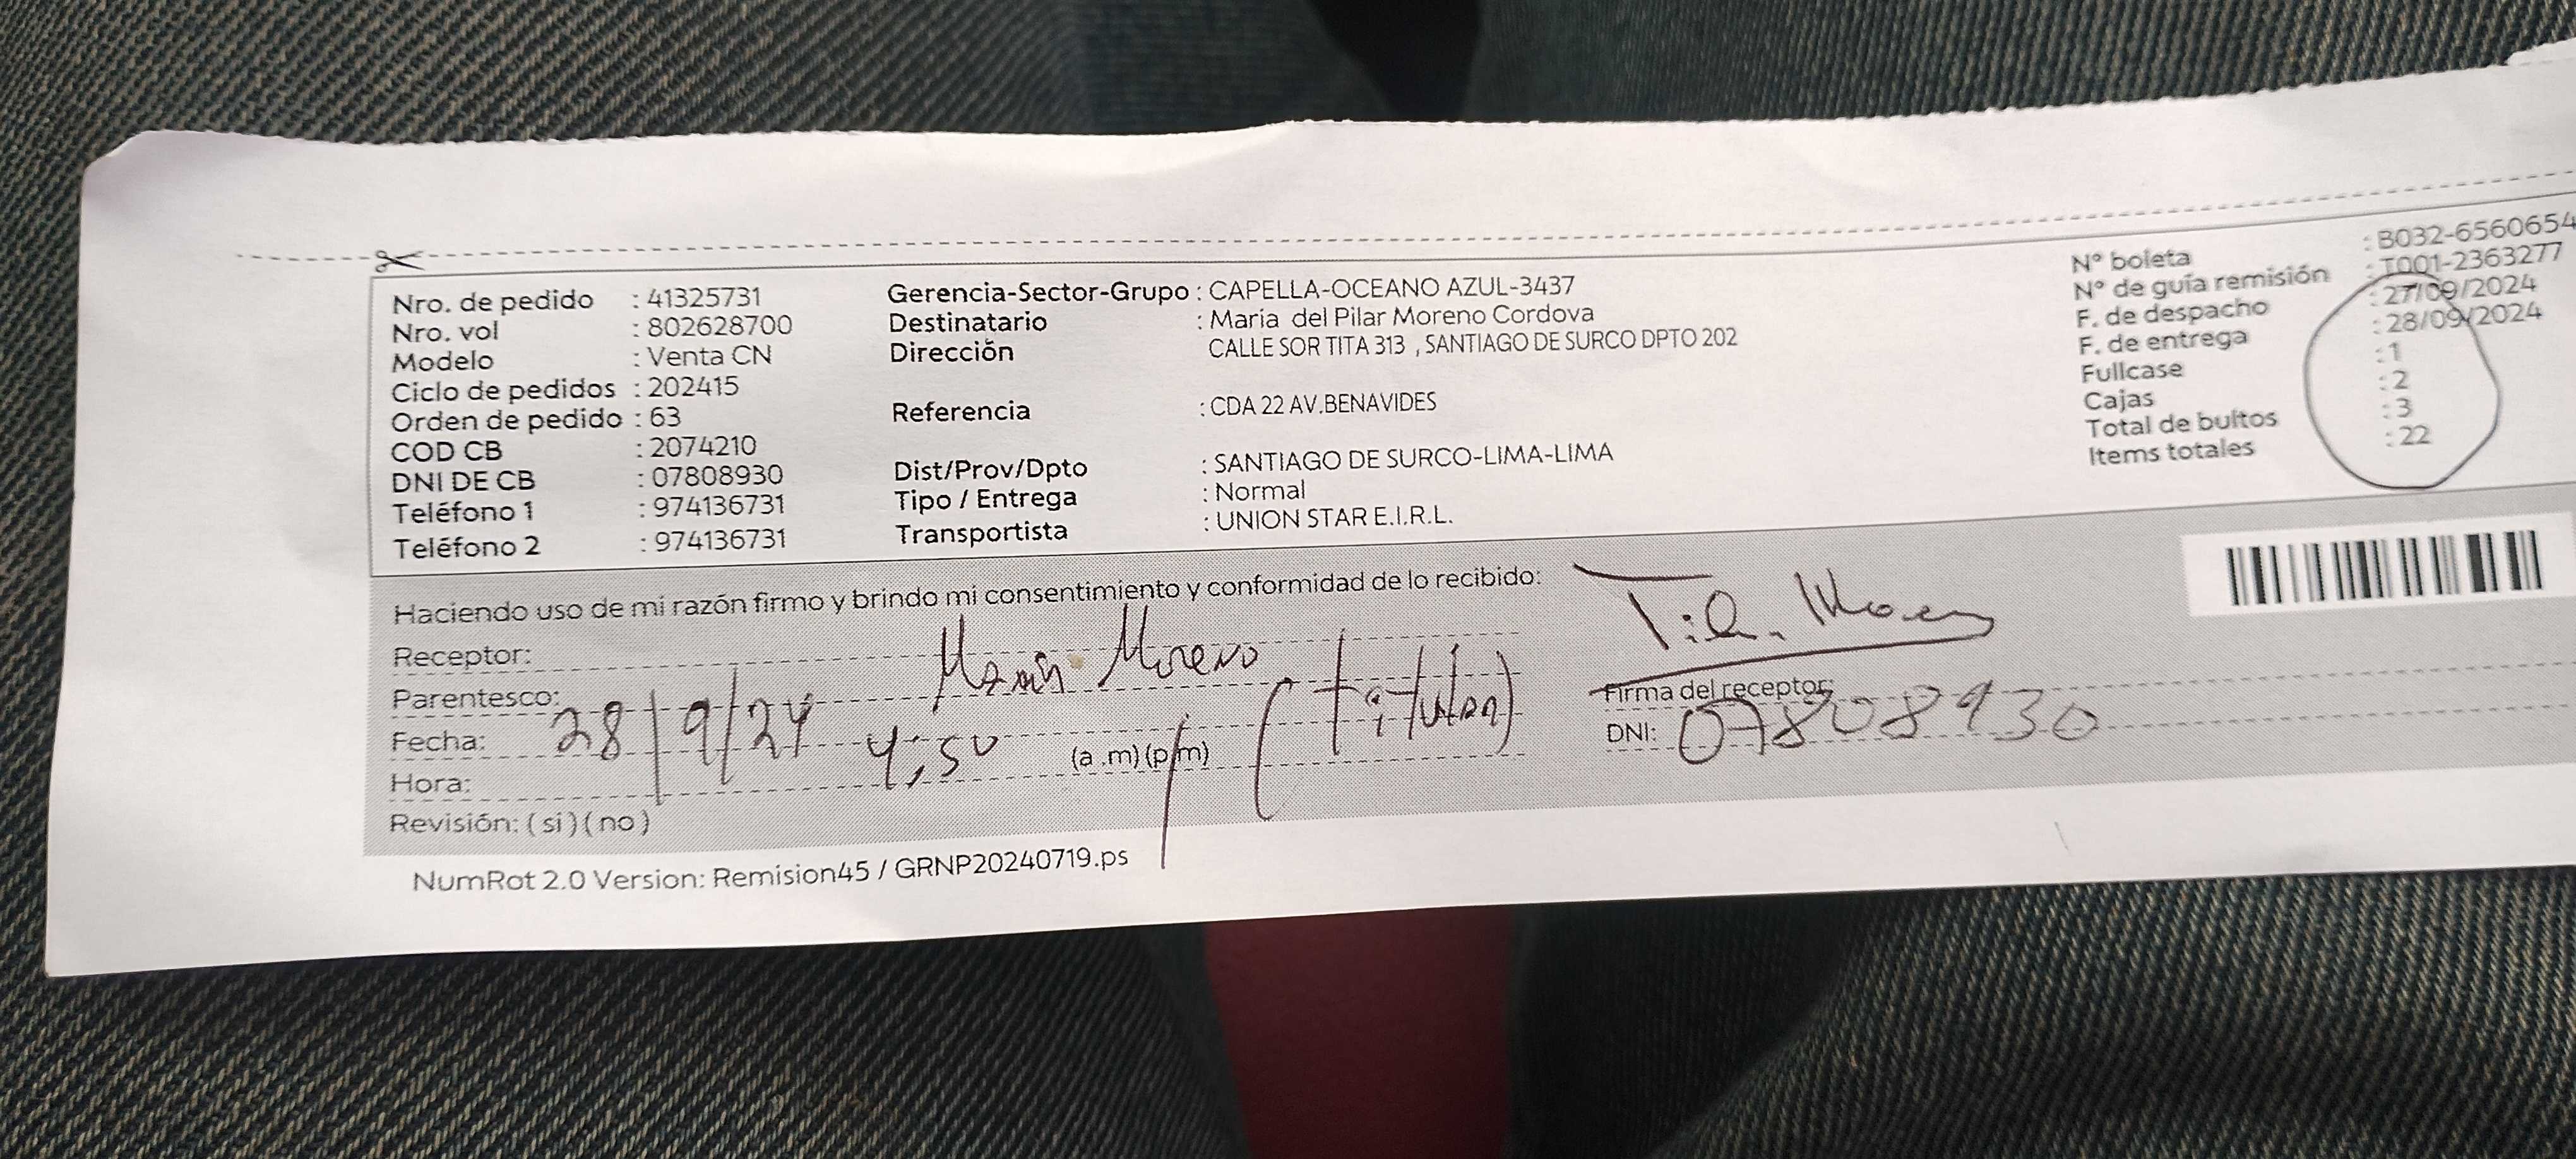 Nro. de pedido : 41325731
Nro. vol : 802628700
Modelo : Venta CN
Ciclo de pedidos : 202415
Orden de pedido : 63
COD CB : 2074210
DNI DE CB : 07808930
Teléfono 1 : 974136731
Teléfono 2 : 974136731
Gerencia-Sector-Grupo : CAPELLA-OCEANO AZUL-3437
Destinatario : Maria del Pilar Moreno Cordova
Dirección CALLE SOR TITA 313 , SANTIAGO DE SURCO DPTO 202
Referencia : CDA 22 AV.BENAVIDES
Dist/Prov/Dpto : SANTIAGO DE SURCO-LIMA-LIMA
Tipo / Entrega : Normal
Transportista : UNION STAR E.I.R.L.
N° boleta : B032-6560654
N° de guía remisión : T001-2363277
F. de despacho : 27/09/2024
F. de entrega : 28/09/2024
Fullcase : 1
Cajas : 2
Total de bultos : 3
Items totales : 22
Haciendo uso de mi razón firmo y brindo mi consentimiento y conformidad de lo recibido:
Receptor: Moreno
Parentesco: (titular)
Fecha: 28/9/24
Hora: 4:50 (a.m)(p.m)
Revisión: (si)(no)
Firma del receptor:
DNI: 07808930
NumRot 2.0 Version: Remision45 / GRNP20240719.ps